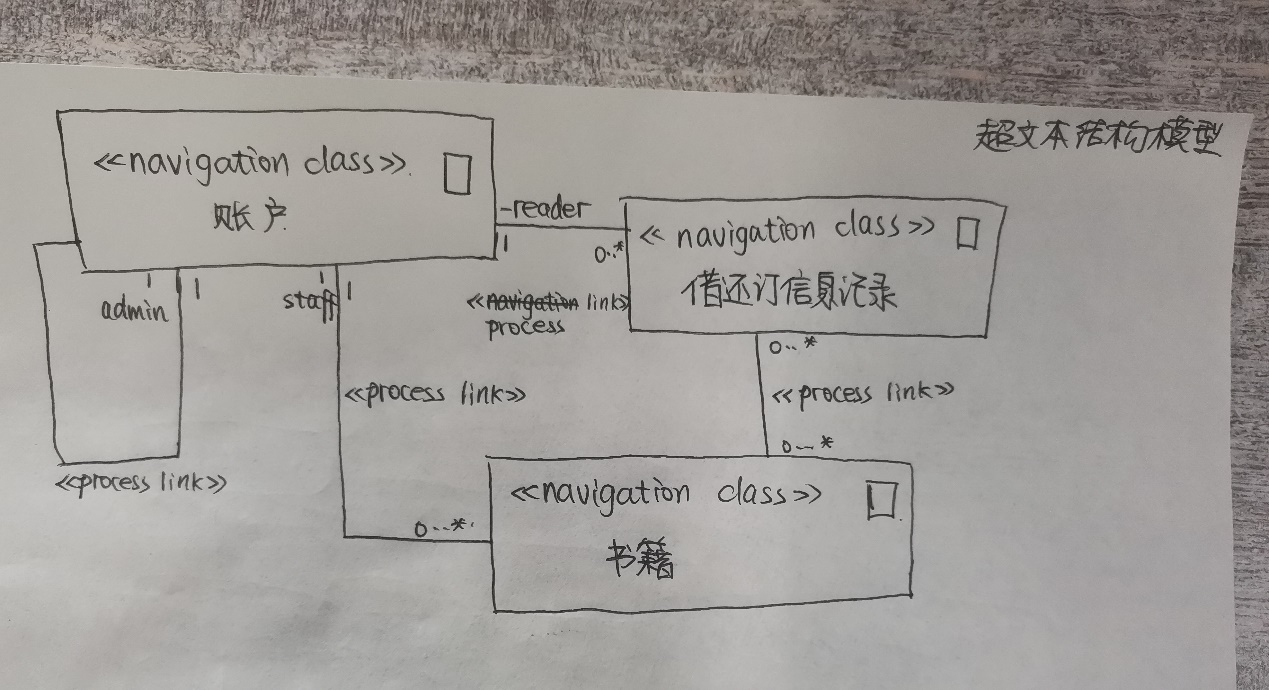 超文本结构模型
<<navigation class>>
账户
-reader
1
0..*
<<navigation class>>
借还订信息记录
1
admin
1
1
staff
1
<<navigation link>>
process
0..*
<<process link>>
<<process link>>
0..*
<<process link>>
<<navigation class>>
书籍
0..*